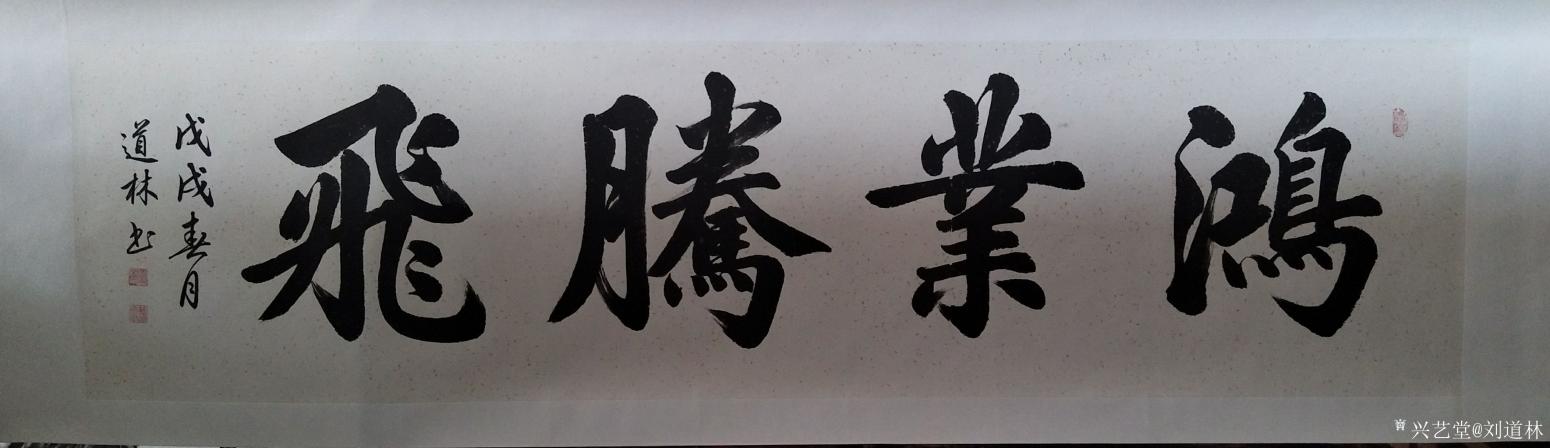 鴻業騰飛
戊戌春月
道林书
兴艺堂@刘道林